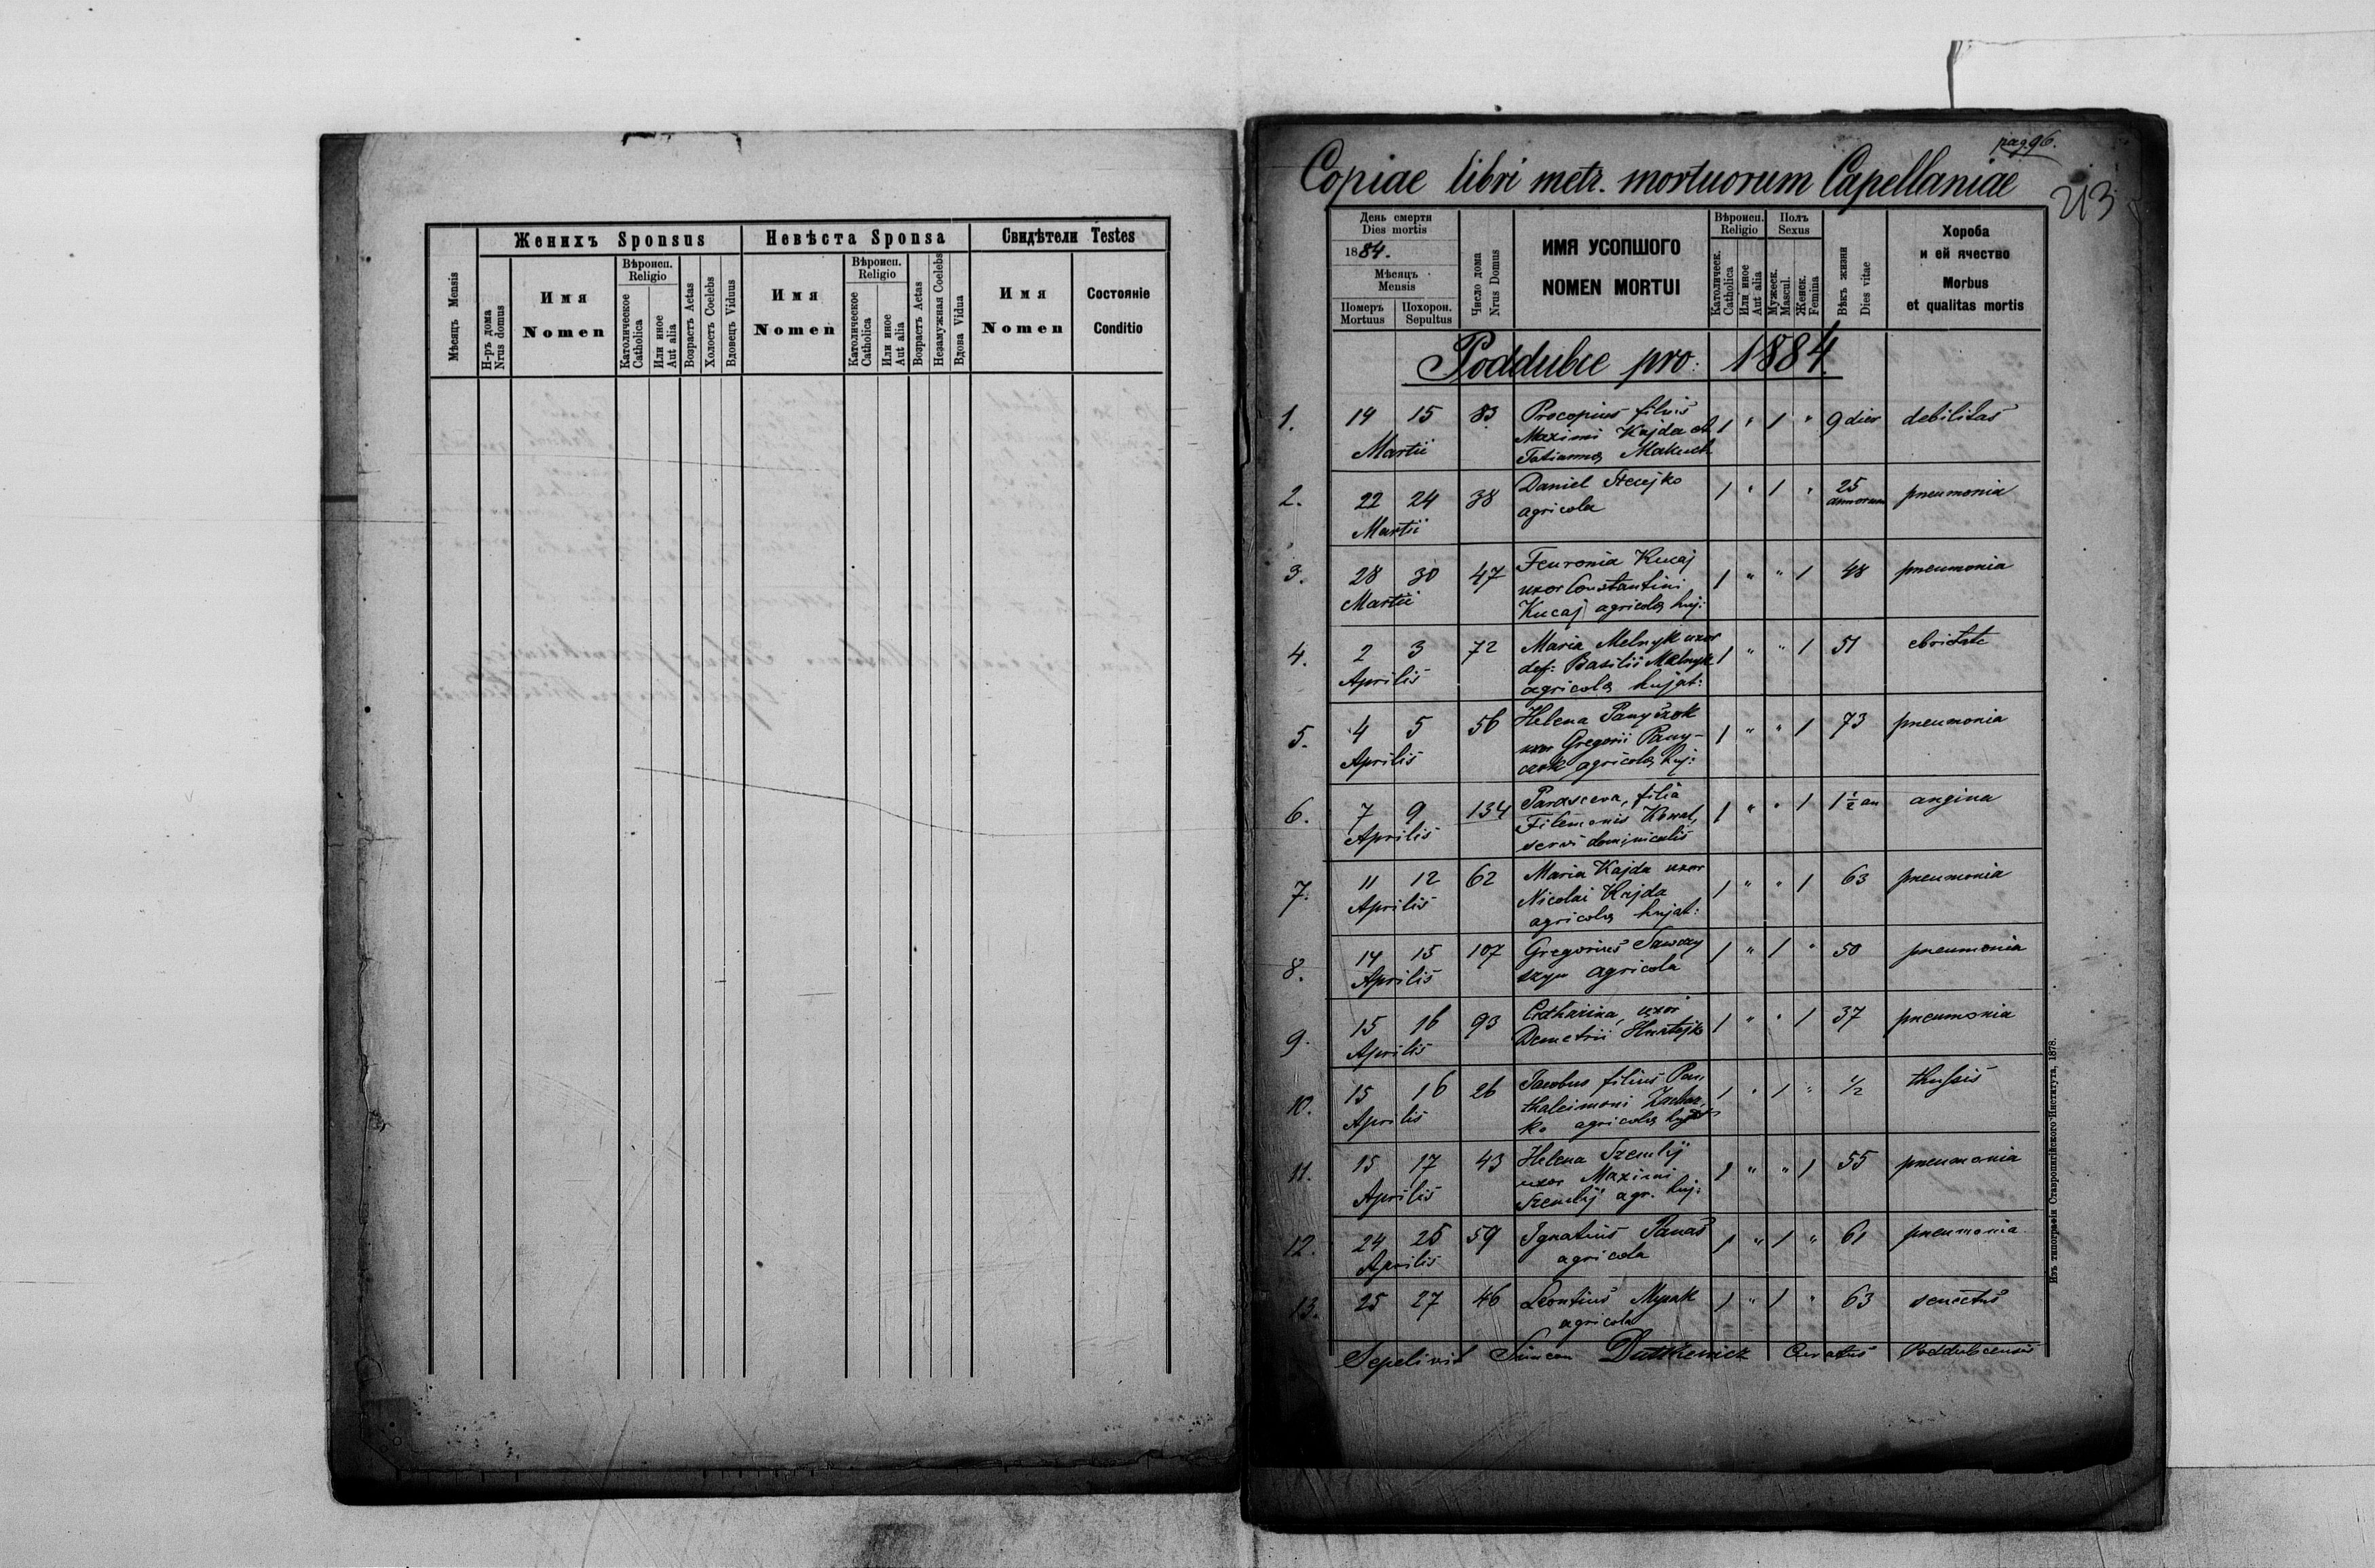 Мѣсяцъ Mensis
Женихъ Sponsus
Н-ръ дома
Nrus domus
Имя
Nomen
Вѣроисп.
Religio
Католическое
Catholica
Или иное
Aut alia
Возрастъ Aetas
Холостъ Coelebs
Вдовецъ Viduus
Невѣста Sponsa
Имя
Nomen
Вѣроисп.
Religio
Католическое
Catholica
Или иное
Aut alia
Возрастъ Aetas
Незамужная Coelebs
Вдова Vidua
Свидѣтели Testes
Имя
Nomen
Состоянie
Conditio
pag 96.
Copiae libri metr. mortuorum Capellaniae
213
День смерти
Dies mortis
1884.
Мѣсяцъ
Mensis
Померъ
Mortuus
Похорон.
Sepultus
Число дома
Nrus Domus
ИМЯ УСОПШОГО
NOMEN MORTUI
Вѣроисп.
Religio
Католическ.
Catholica
Или иное
Aut alia
Полъ
Sexus
Мужеск.
Mascul.
Женск.
Femina
Вѣкъ жизни
Dies vitae
Хороба
и ей ячество
Morbus
et qualitas mortis
Poddubce pro: 1884.
1. 14 15 83 Procopius filius 1 " 1 " 9 dies debilitas
Martii Maximi Kajda et
Tatianna Makuch
2. 22 24 38 Daniel Stecejko 1 " 1 " 25 annorum pneumonia
Martii agricola
3. 28 30 47 Feuronia Kucaj 1 " " 1 48 pneumonia
Martii uxor Constantini
Kucaj agricola huj:
4. 2 3 72 Maria Melnyk uxor 1 " " 1 51 ebrietate
Aprilis def: Basilii Melnyk
agricola hujat:
5. 4 5 56 Helena Panyszok 1 " " 1 73 pneumonia
Aprilis uxor Gregorii Pany-
agricola huj:
6. 7 9 134 Parasceva, filia 1 " " 1 1 1/2 an angina
Aprilis Filemonis
servi dominicalis
7. 11 12 62 Maria Kajda uxor 1 " " 1 63 pneumonia
Aprilis Nicolai Kajda
agricola hujat:
8. 14 15 107 Gregorius 1 " 1 " 50 pneumonia
Aprilis agricola
9. 15 16 93 Catharina, uxor 1 " " 1 37 pneumonia
Aprilis Demetrii
10. 15 16 26 Jacobus filius Pan- 1 " 1 " 1/2
Aprilis thaleimoni
ko agricola
11. 15 17 43 Helena Szemlij 1 " " 1 55 pneumonia
Aprilis uxor Maximi
Szemlij agr. huj:
12. 24 25 59 Ignatius Panas 1 " 1 " 61 pneumonia
Aprilis agricola
13. 25 27 46 Leontius 1 " 1 " 63 senectus
agricola
Sepelivit Simeon Dutkiewicz Curatus Poddubcensis
Изъ типографiи Ставропигiйского Института, 1878.